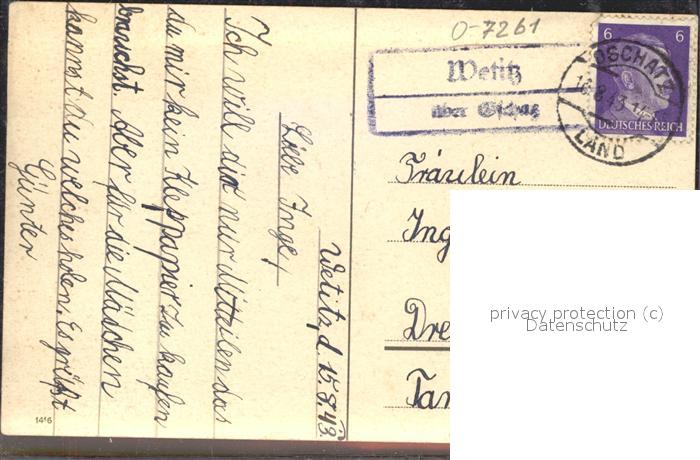 O-7261
Wetitz
über Oschatz
6 6
OSCHATZ
16.8.43
LAND
DEUTSCHES REICH
Wetitz, d. 15.8.43.
Liebe Inge,
Ich will dir nur Mitteilen das
du mir kein Kleppapier zu kaufen
brauchst. Aber für die Mädchen
kannst du welches holen. Es grüßt
Günter
Fräulein
Ing
Dre
Tan
privacy protection (c)
Datenschutz
1416